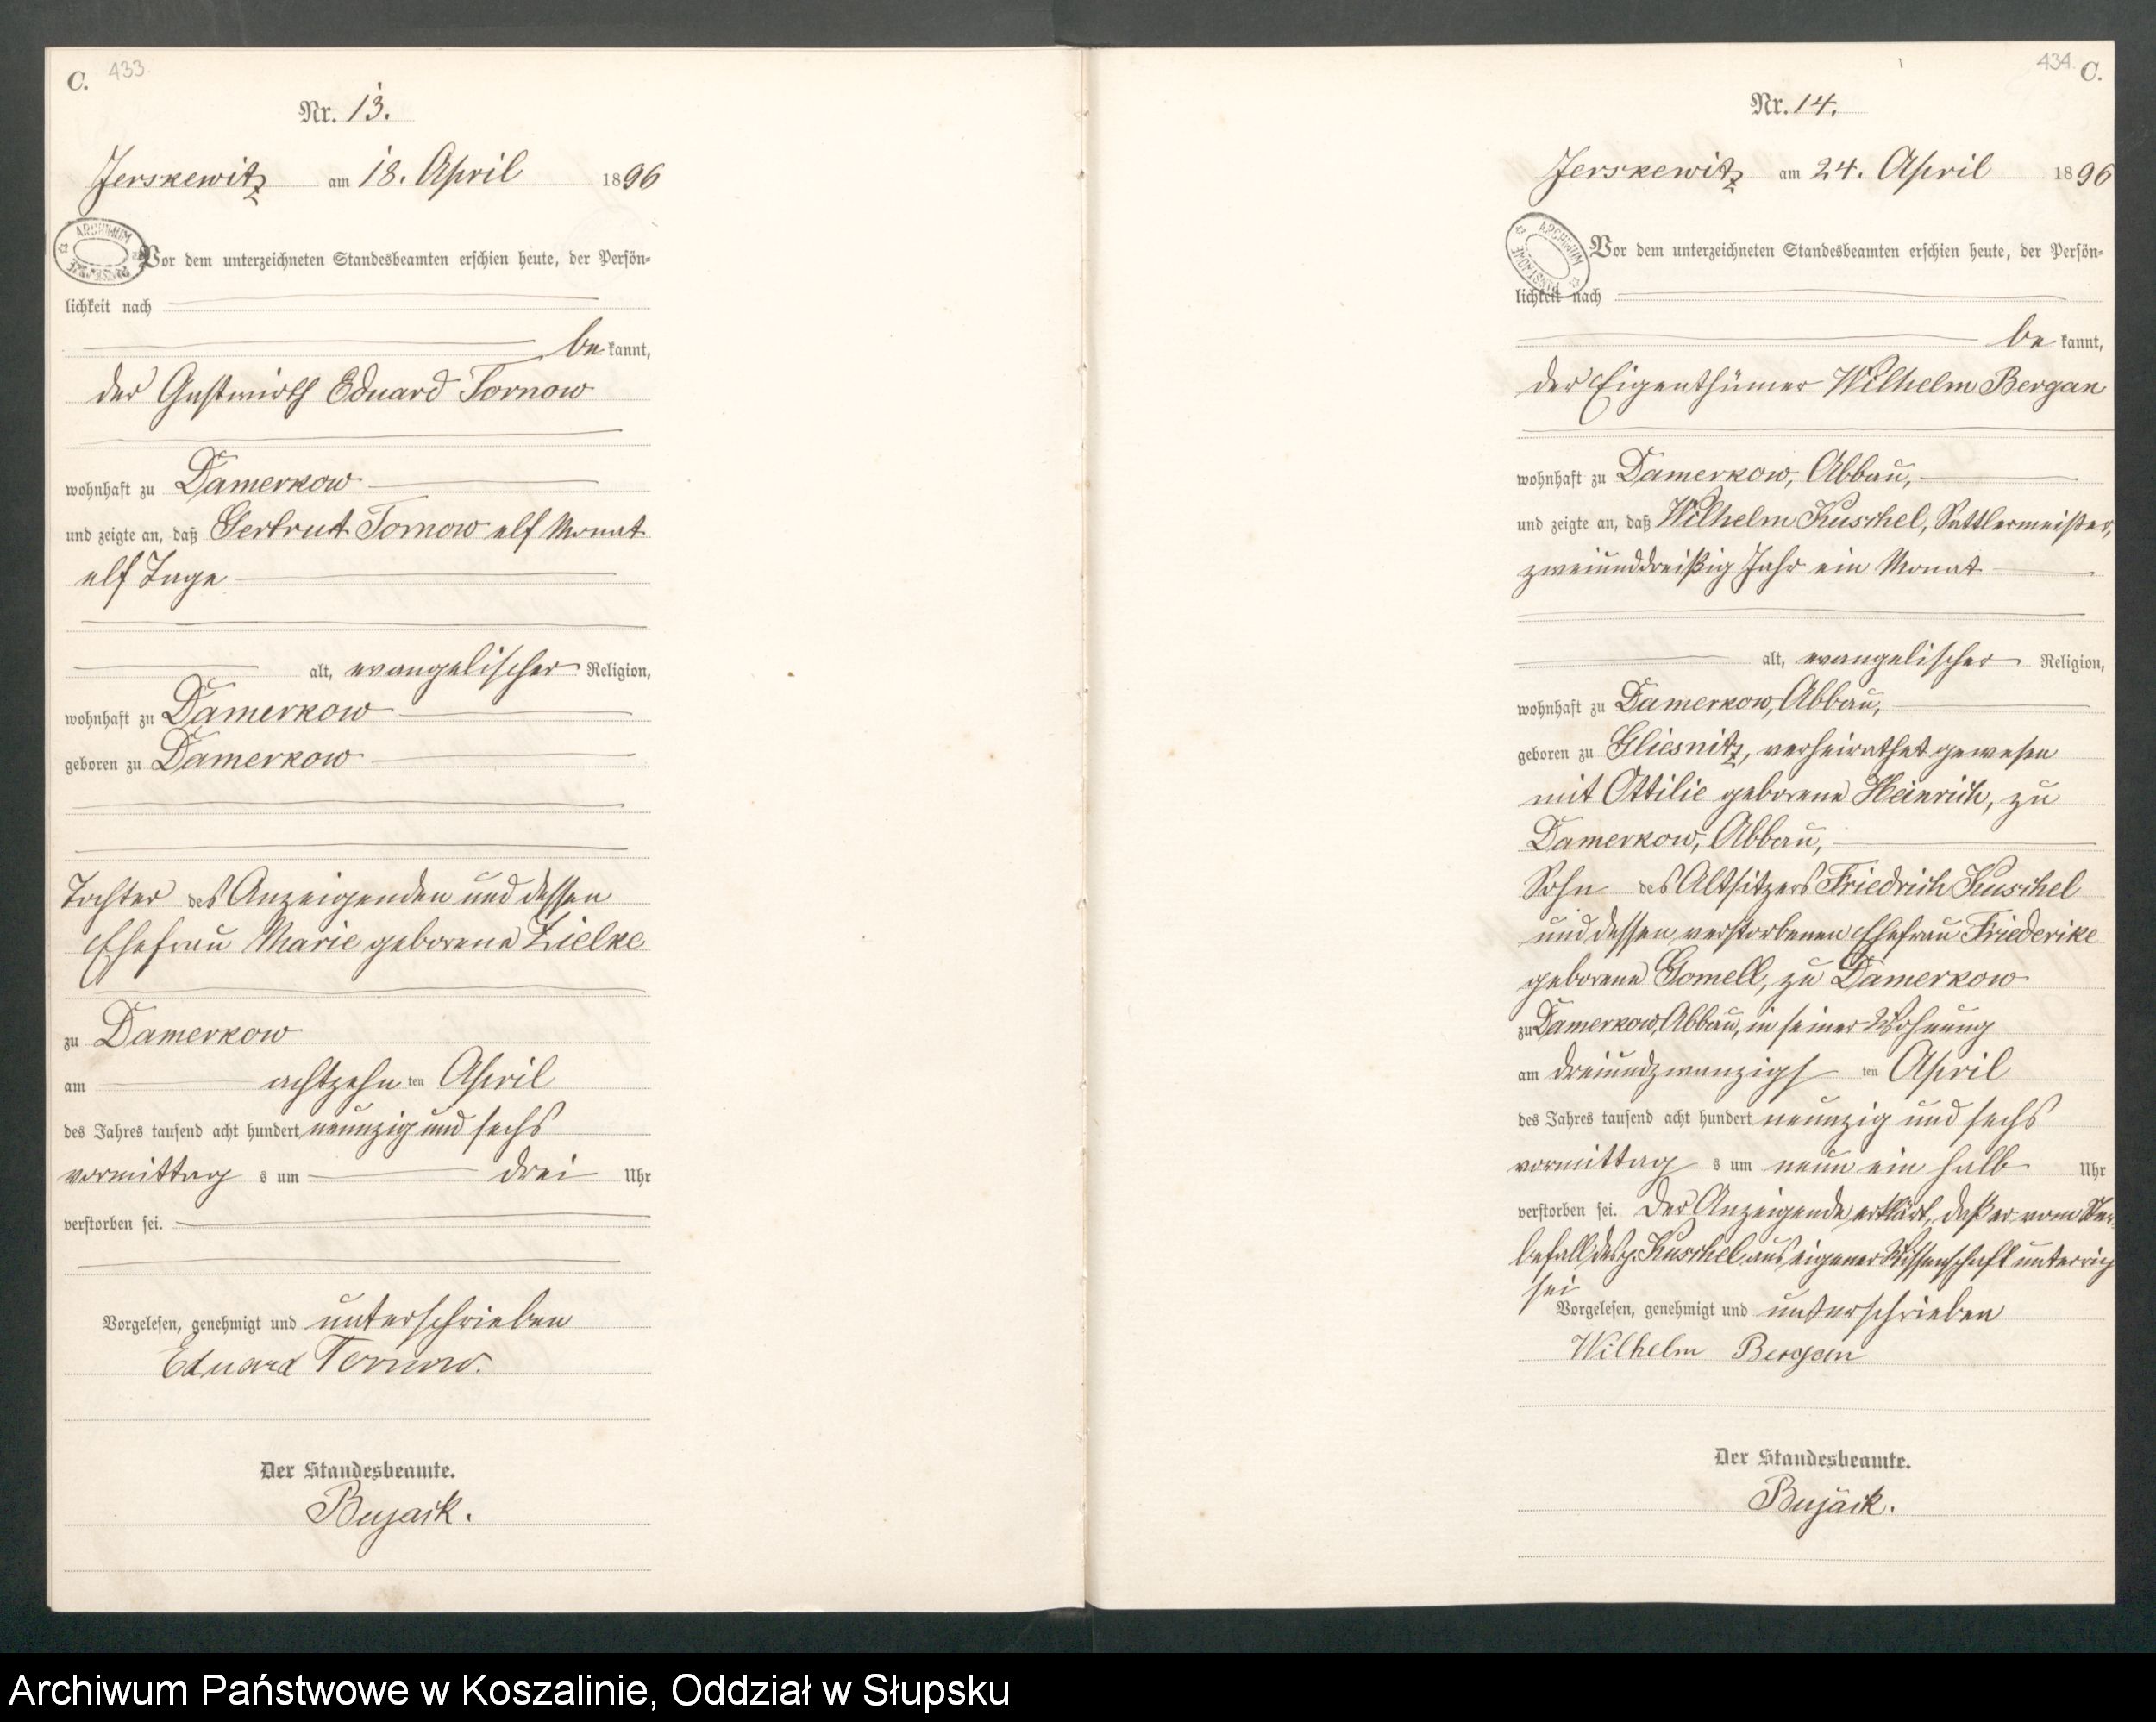 C. 433.
Nr. 13.
Jerskewitz am 18. April 1896
ARCHIWUM
Vor dem unterzeichneten Standesbeamten erschien heute, der Persön-
lichkeit nach
be kannt,
der Gastwirth Eduard Tornow
wohnhaft zu Damerkow
und zeigte an, daß Gertrud Tornow elf Monat
elf Tage
alt, evangelischer Religion,
wohnhaft zu Damerkow
geboren zu Damerkow
Tochter des Anzeigenden und dessen
Ehefrau Marie geborene Lielke
zu Damerkow
am achtzehn ten April
des Jahres tausend acht hundert neunzig und sechs
vormittag s um drei Uhr
verstorben sei.
Vorgelesen, genehmigt und unterschrieben
Eduard Tornow.
Der Standesbeamte.
Bujack.
434. C.
Nr. 14.
Jerskewitz am 24. April 1896
ARCHIWUM
Vor dem unterzeichneten Standesbeamten erschien heute, der Persön-
lichkeit nach
be kannt,
der Eigenthümer Wilhelm Bergan
wohnhaft zu Damerkow, Abbau,
und zeigte an, daß Wilhelm Kuschel, Sattlermeister,
zweiunddreißig Jahr ein Monat
alt, evangelischer Religion,
wohnhaft zu Damerkow, Abbau,
geboren zu Gliesnitz, verheirathet gewesen
mit Ottilie geborene Heinrich, zu
Damerkow, Abbau,
Sohn des Altsitzers Friedrich Kuschel
und dessen verstorbenen Ehefrau Friederike
geborene Gomell, zu Damerkow
zu Damerkow, Abbau, in seiner Wohnung
am dreiundzwanzigs ten April
des Jahres tausend acht hundert neunzig und sechs
vormittag s um neun ein halb Uhr
verstorben sei. Der Anzeigende erklärt, daß er vom Ster-
befall des p. Kuschel aus eigener Wissenschaft unterrich
sei
Vorgelesen, genehmigt und unterschrieben
Wilhelm Bergan
Der Standesbeamte.
Bujack.
Archiwum Państwowe w Koszalinie, Oddział w Słupsku